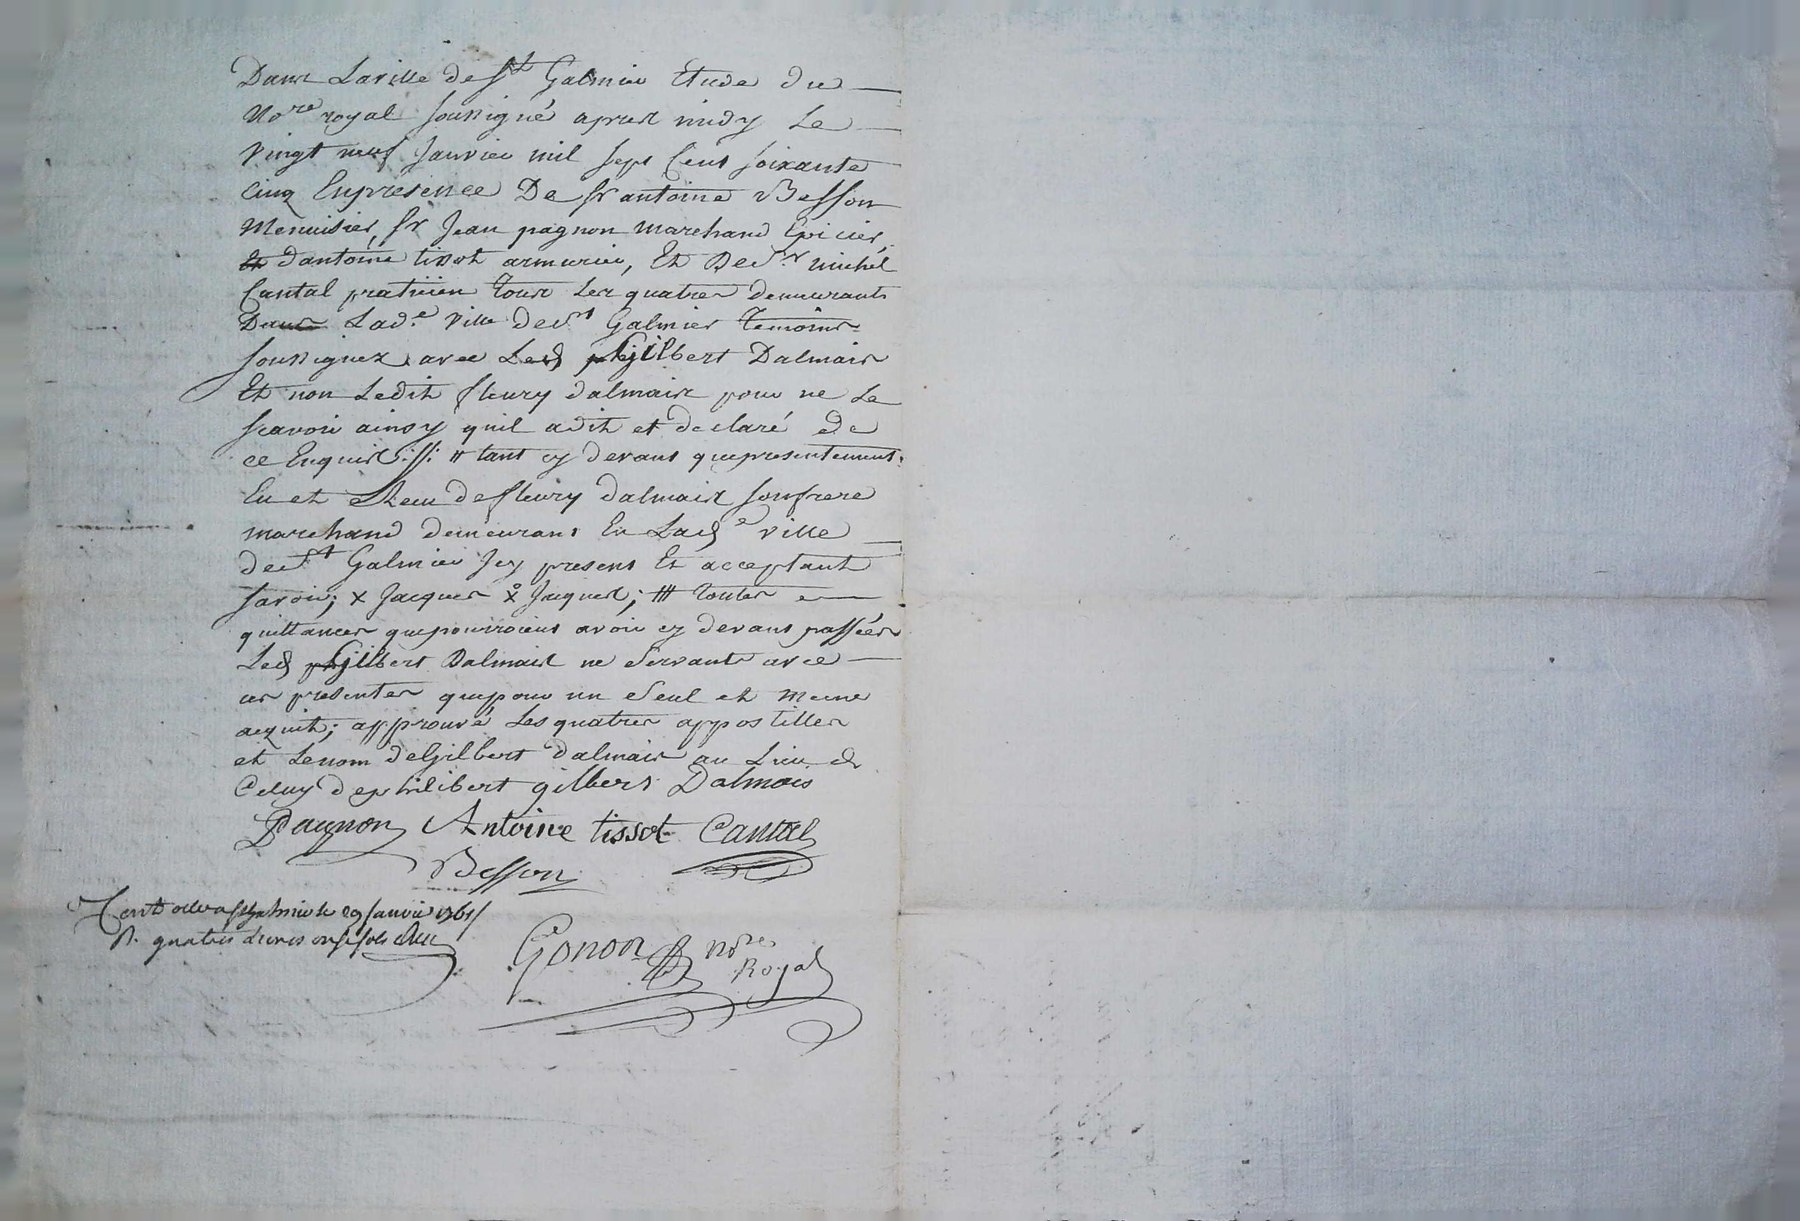 Dans La ville de St Galmier Etude du
Nore royal soussigné apres midy Le
vingt neuf Janvier mil sept Cent soixante
cinq En presence De sr antoine Besson
Menuisier, sr Jean pagnon marchand Epicier,
et d'antoine tissot armurier, Et De sr michel
Cantal praticien Tous Les quatres demeurants
Dans Lade ville de st Galmier Temoins
soussignez avec Led Gilbert Dalmais
Et non Ledit fleury dalmais pour ne Le
scavoir ainsy quil a dit et declaré de
ce Enquis ://: # tant cy devant que presentement
Eu et Receu de fleury dalmais son frere
marchand demeurant En Lade ville
de st Galmier Icy present Et acceptant
savoir; x Jacques x Jacques; ## toutes
quittances que pourroient avoir cy devant passées
Led Gilbert Dalmais ne Servants avec
ces presentes que pour un Seul et meme
acquit; approuvé Les quatres appostilles
et Le nom de Gilbert dalmais au Lieu de
Celuy de philibert gilbert Dalmais
Pagnon Antoine tissot Cantal
Besson
Controllé a st Galmier le 29 Janvier 1765
R. quatres Livres onze sols
Gonon Nore
Royal